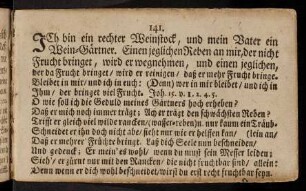 141.
ICh bin ein rechter Weinstock, und mein Vater ein
Wein-Gärtner. Einen jeglichen Reben an mir, der nicht
Frucht bringet, wird er wegnehmen, und einen jeglichen,
der da Frucht bringet/ wird er reinigen/ daß er mehr Frucht bringe.
Bleibet in mir/ und ich in euch: (Denn) wer in mir bleibet/ und ich in
Ihm/ der bringet viel Frucht. Joh. 15. v. 1. 2. 4. 5.
O wie soll ich die Gedult meines Gärtners hoch erheben?
Daß er mich noch immer trägt: Ach er trägt den schwächsten Reben?
Trifft er gleich viel wilde rancken/ nur kaum ein Träub-
Schneidet er ihn doch nicht abe/ sieht nur wie er helffen kan/ (lein an/
Daß er mehrer' Frühte bringe. Daß dich Seele nun beschneiden/
Und gedenck: Er mein's wohl/ wenn du must sein Messer leiden:
Sieh/ er zürnt nur mit den Rancken/ die nicht fruchtbar sind/ allein:
Denn wenn er dich wohl beschneidet/ wirst du erst recht fruchtbar seyn.